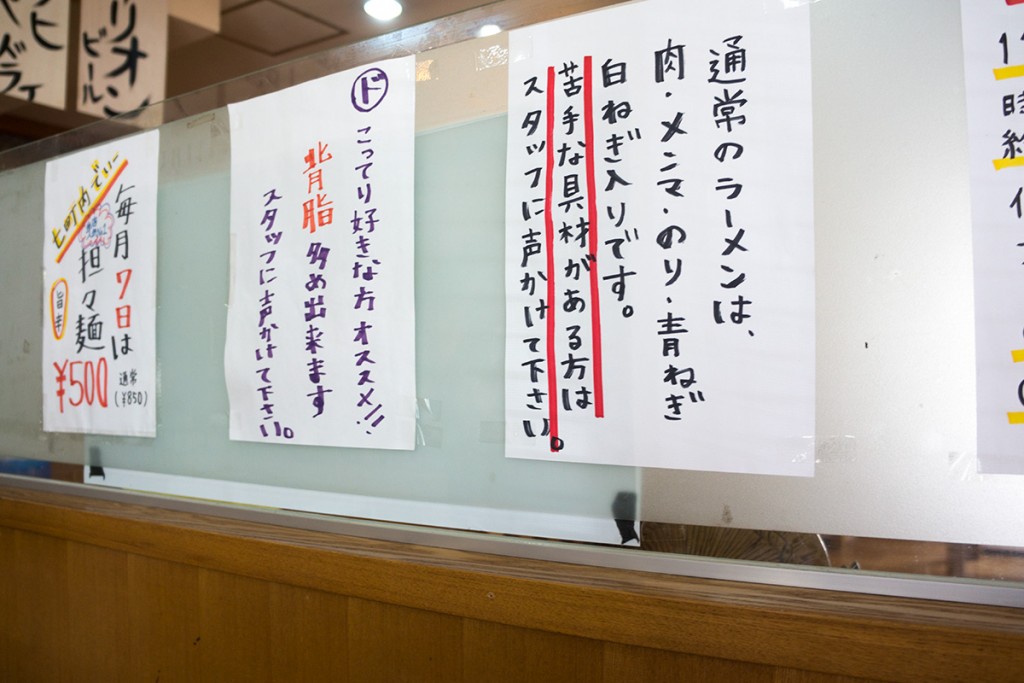 通常のラーメンは、
肉・メンマ・のり・青ねぎ
白ねぎ入りです。
苦手な具材がある方は
スタッフに声かけて下さい。
ド
こってり好きな方 オススメ!!
背脂 多め出来ます
スタッフに声かけて下さい。
七町内でぃー
毎月7日は
担々麺
旨辛
¥500
通常
(¥850)
リオン
ビール
時